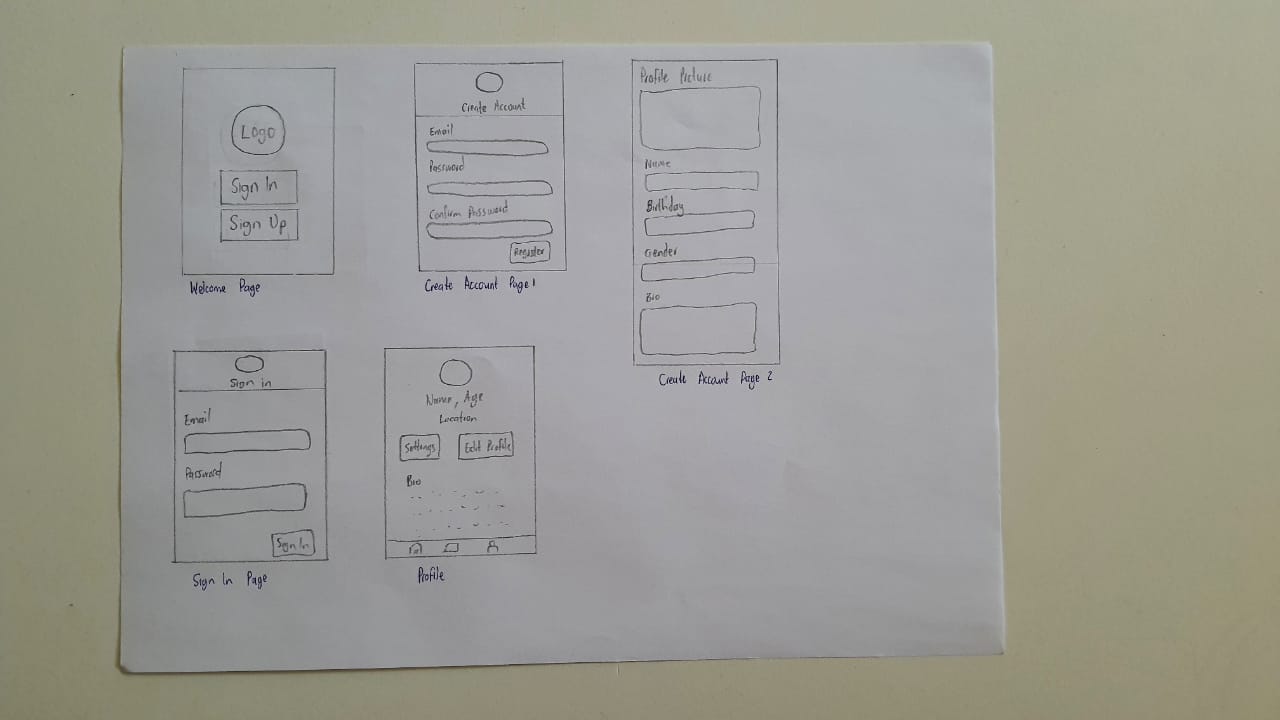 Logo
Sign In
Sign Up
Welcome Page
Create Account
Email
Password
Confirm Password
Register
Create Account Page 1
Profile Picture
Name
Birthday
Gender
Bio
Create Account Page 2
Sign in
Email
Password
Sign In
Sign In Page
Name, Age
Location
Settings
Edit Profile
Bio
Profile